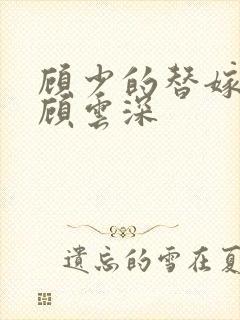 顾少的替嫁
顾雲深
遺忘的雪在夏